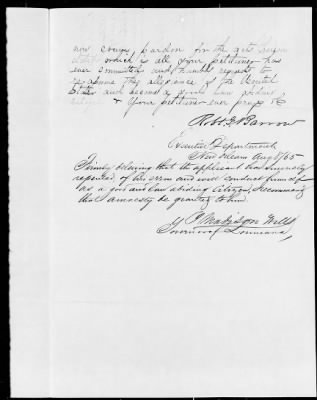 now craves pardon for the acts
which is all your petitioner has
ever committed and humbly requests to
resume the allegiance of the United
States and become a good law
& your petitioner ever prays &c
Robt. H. Barrow
Executive Department
New Orleans Aug 8/65
Firmly believing that the applicant has sincerely
repented of his error and will conduct himself
as a good and law abiding citizen, I recommend
that amnesty be granted to him.
J Madison Wells
Governor of Louisiana,